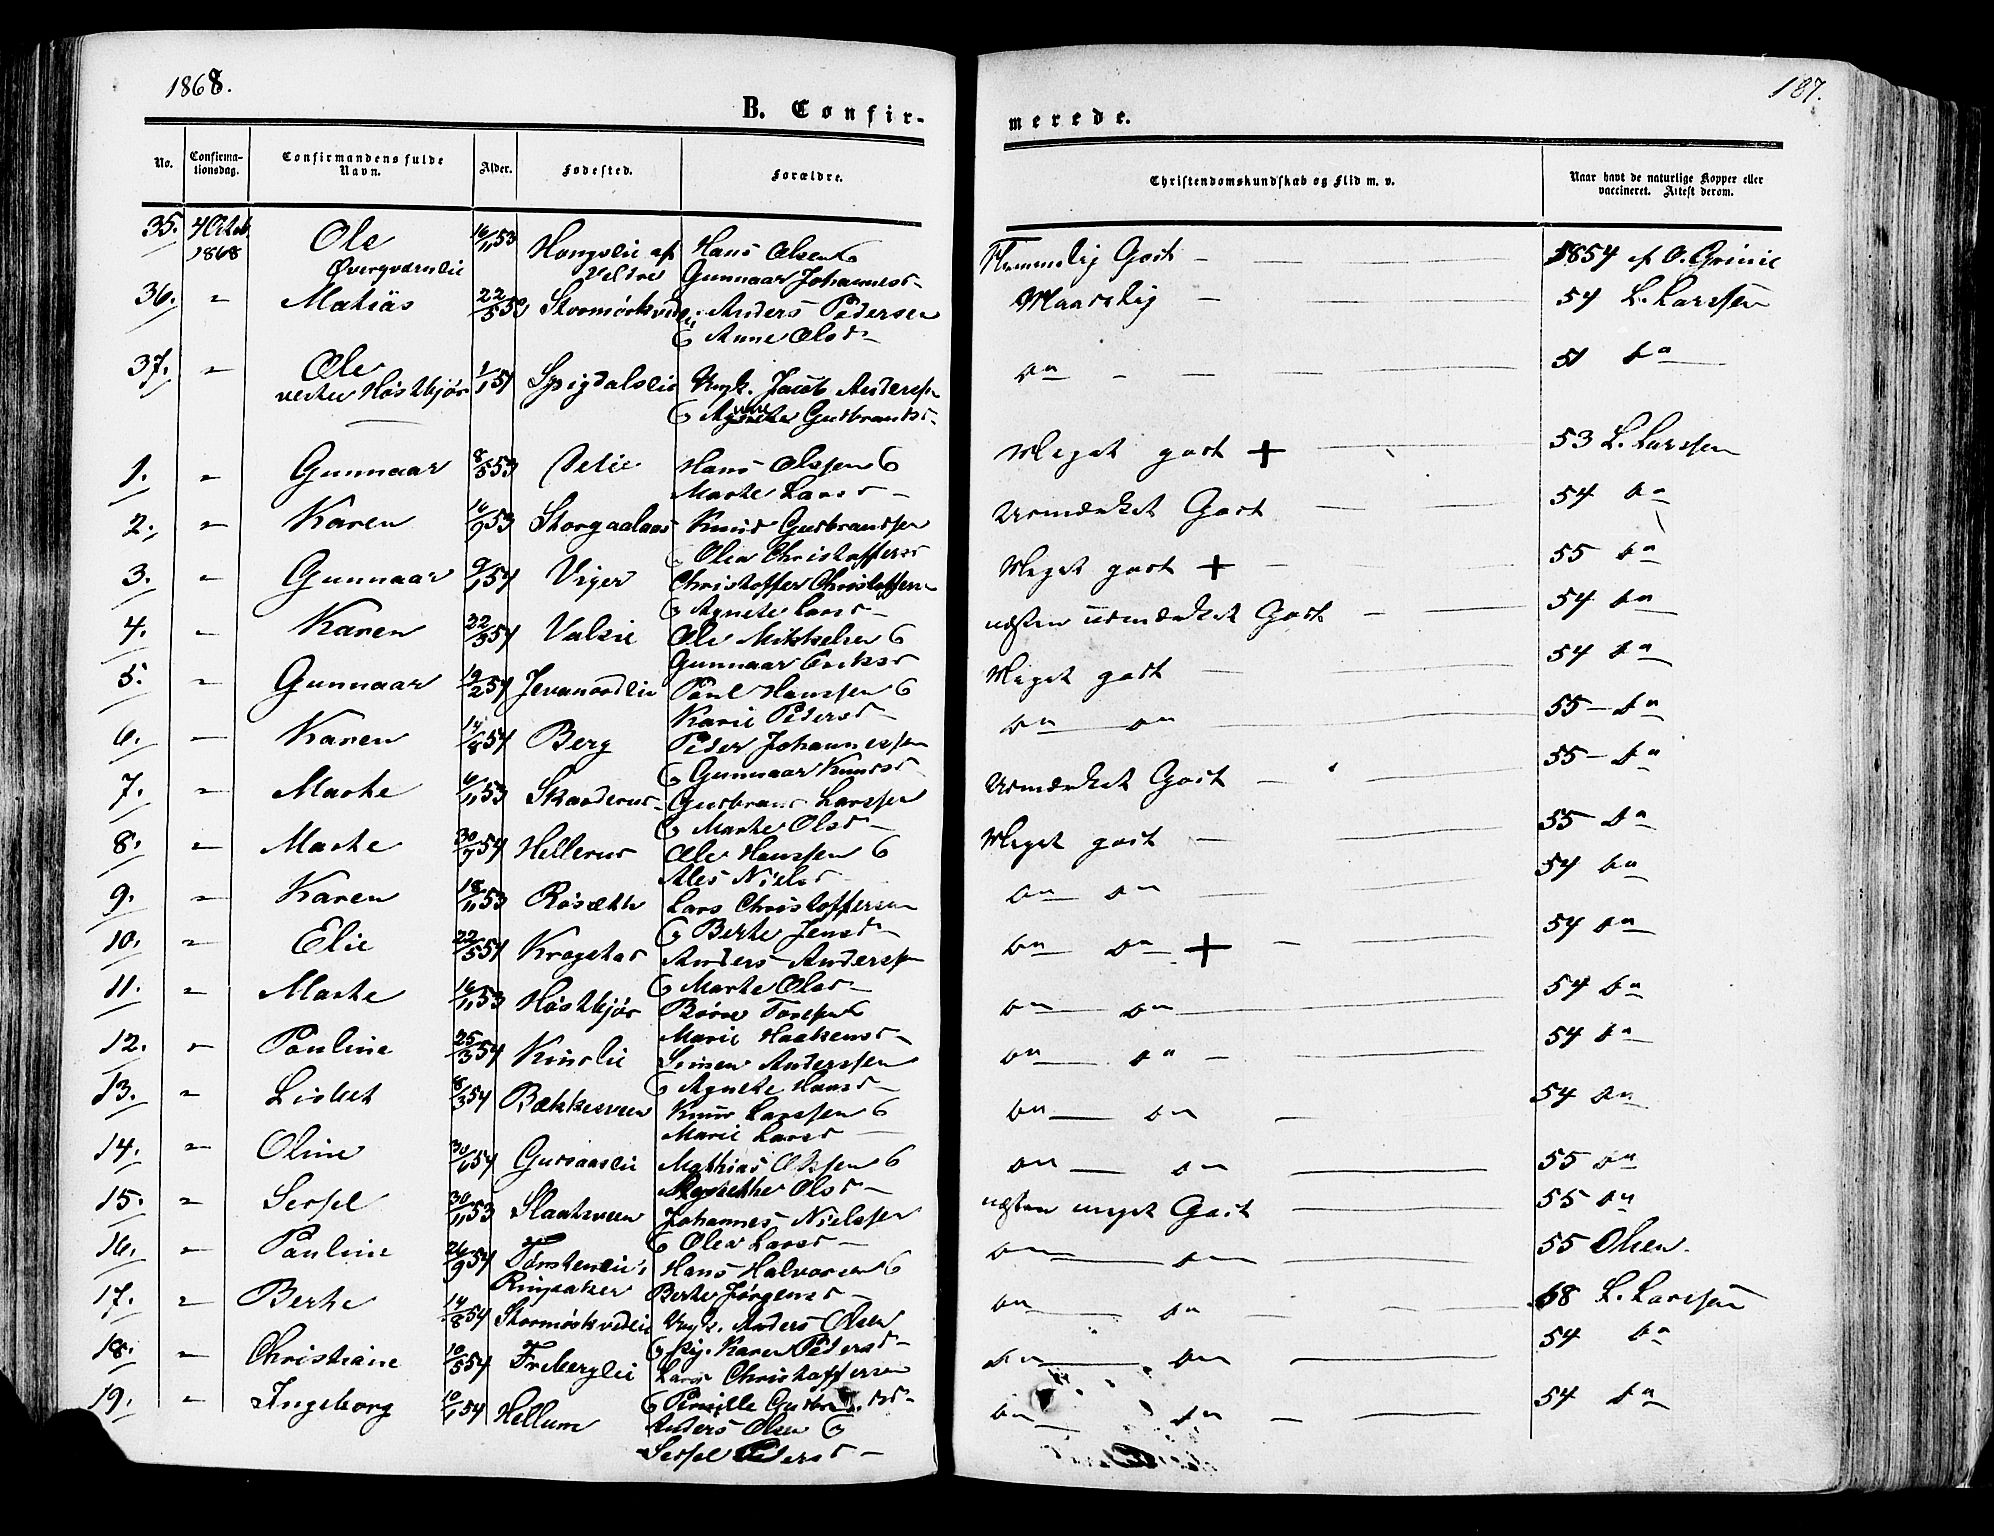 1868.
187.
B. Confir-
merede.
No.
Confirma-
tionsdag.
Confirmandens fulde
Navn.
Alder.
Fødested.
Forældre.
Christendomskundskab og Flid m. v.
Naar havt de naturlige Kopper eller
vaccineret. Attest derom.
35. 4 Octob Ole 16/11 53 Hans Olsen &
1868 Gunnaar Johannesd
Godt 1854 af O.
36. " Mathias 22/5 53 Anders Pedersen
& Anne Olsd
Maadelig 54 L. Larssen
37. " Ole 1/1 54 Spigdalseie Ungk. Jacob Anderss
vestre Høstkjøs & Gudbrandsd
do 54 do
1. " Gunnaar 8/5 53 Hans Olssen &
Marthe Larsd
Meget godt + 53 L. Larssen
2. " Karen 16/9 53 Storgaalaas Knud Gudbrandsen
& Olea Christoffersd
Udmærket Godt 54 do
3. " Gunnaar 9/1 54 Viger Christoffer Christoffersen
& Agnete Larsd
Meget godt + 55 do
4. " Karen 22/3 54 Valeie Ole Mikkelsen &
Gunnaar Eriksd
næsten udmærket Godt 54 do
5. " Gunnaar 19/2 54 Poul Hanssen &
Karie Pedersd
Meget godt 54 do
6. " Karen 14/8 54 Berg Peder Johannessen
& Gunnaar Knudsd
do do 55 do
7. " Marthe 6/11 53 Skaderud Gudbrand Larssen
& Marthe Olsd
Udmærket Godt 55 do
8. " Marthe 30/7 54 Hellerud Ole Hanssen &
Ales Nielsd
Meget godt 55 do
9. " Karen 18/11 53 Lars Christoffersen
& Berthe Jensd
do do 54 do
10. " Elie 22/5 54 Kragstad Anders Anderss
& Marthe Olsd
do do + 54 do
11. " Marthe 16/11 53 Høstkjøs &
Marie Haakensd
do do 54 do
12. " Pauline 25/3 54 Simen Anderssen
& Agnete Hansd
do do 54 do
13. " Lisbet 8/3 54 Bækkesveen Knud Larssen &
Marie Larsd
do do 54 do
14. " Oline 54 Mathias Olssen &
Olsd
do do 55 do
15. " Sersel 30/11 53 Slaatsveen Johannes Nielssen
& Olea Larsd
næsten meget Godt 55 do
16. " Pauline 26/9 54 Hans Halvorsen &
Ringsaker Berthe Jørgensd
do do 55 Olsen.
17. " Berthe 14/8 54 Ungk. Anders Olsen
& pig. Karen Pedersd
do do 68 L. Larssen
18. " Christiane 10/5 54 Frebergeie Lars Christoffersen
& Pernille
do do 54 do
19. " Ingeborg 10/1 54 Hellum Anders Olsen &
Sersel Pedersd
do do 54 do